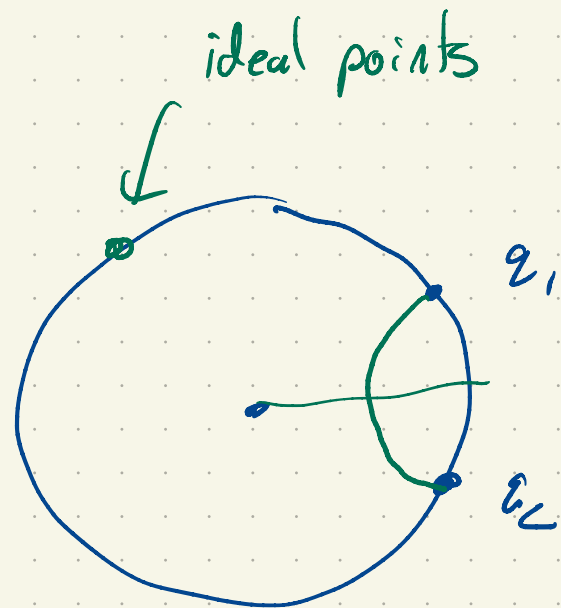 ideal points
q₁
q₂